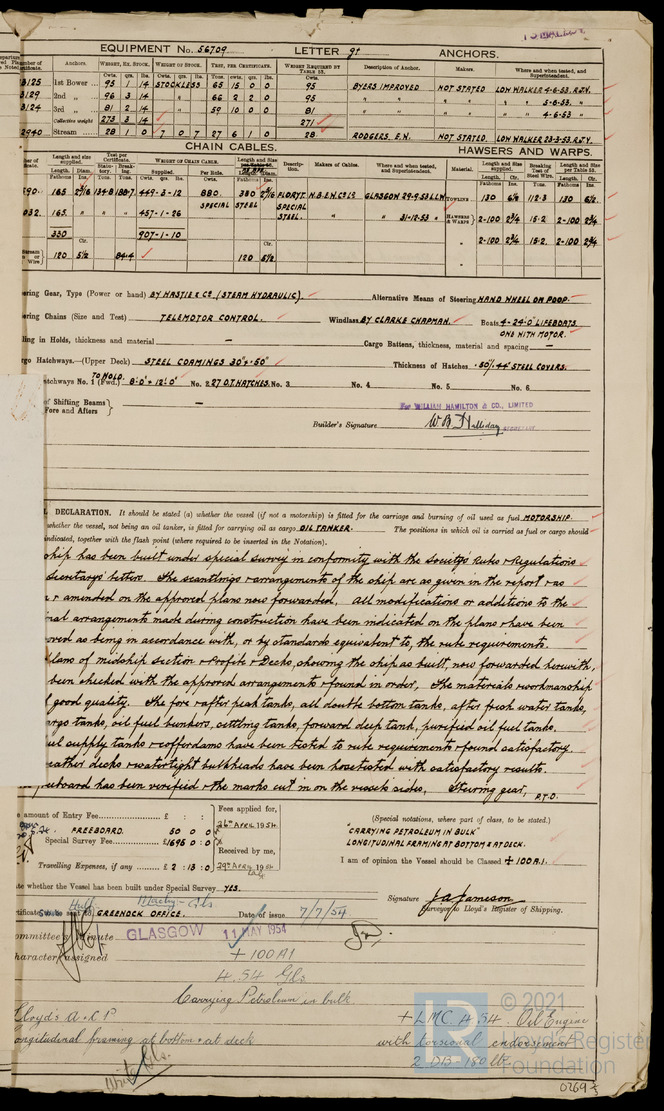 EQUIPMENT No. 56709 LETTER g† ANCHORS.
Anchors. WEIGHT, EX. STOCK. WEIGHT OF STOCK. TEST, PER CERTIFICATE. WEIGHT REQUIRED BY TABLE 53. Description of Anchor. Makers. Where and when tested, and Superintendent.
Cwts. qrs. lbs. Cwts. qrs. lbs. Tons. cwts. qrs. lbs. Cwts.
3125 1st Bower 95 1 14 STOCKLESS 65 15 0 0 95 BYERS IMPROVED NOT STATED LOW WALKER 4-6-53. R.J.V.
3129 2nd „ 96 3 14 66 2 2 0 95 " " " " " 5-6-53. "
3124 3rd „ 81 2 14 59 10 0 0 81 " " " " " 4-6-53 "
Collective weight 273 3 14 271
2940 Stream 28 1 0 7 0 7 27 6 1 0 28 RODGERS. E.N. NOT STATED. LOW WALKER 23-3-53. R.J.V.
CHAIN CABLES. HAWSERS AND WARPS.
Length and size supplied. Test per Certificate. WEIGHT OF CHAIN CABLE. Description. Makers of Cables. Where and when tested, and Superintendent. Material. Length and Size supplied. Breaking Test of Steel Wire. Length and Size per Table 53.
Supplied. Per Rule.
165. 2 9/16 449-3-12 880. 380 2 9/16 GLASGOW 29-9-53 TOWLINE 130 6½ 112·3 130 6½
SPECIAL STEEL SPECIAL STEEL.
032. 165. " " " 457-1-26 " 31-12-53 " HAWSERS & WARPS 2-100 2¾ 15·2. 2-100 2¾
330 907-1-10 2-100 2¾ 15·2. 2-100 2¾
120 5½ 84·4 120 5½
ering Gear, Type (Power or hand) BY HASTIE & CO (STEAM HYDRAULIC). Alternative Means of Steering HAND WHEEL ON POOP.
ering Chains (Size and Test) TELEMOTOR CONTROL. Windlass BY CLARKE CHAPMAN. Boats 4-24'·0" LIFEBOATS.
ONE WITH MOTOR.
ling in Holds, thickness and material — Cargo Battens, thickness, material and spacing —
rgo Hatchways.—(Upper Deck) STEEL COAMINGS 30" × ·50" Thickness of Hatches ·50"/·44" STEEL COVERS.
TO HOLD
atchways No. 1 (Fwd.) 8'·0" × 12'·0" No. 2. 27 O.T. HATCHES. No. 3 No. 4 No. 5 No. 6
of Shifting Beams
Fore and Afters } —
For WILLIAM HAMILTON & CO., LIMITED
Builder's Signature W B Halliday SECRETARY.
DECLARATION. It should be stated (a) whether the vessel (if not a motorship) is fitted for the carriage and burning of oil used as fuel MOTORSHIP.
whether the vessel, not being an oil tanker, is fitted for carrying oil as cargo OIL TANKER. The positions in which oil is carried as fuel or cargo should
indicated, together with the flash point (where required to be inserted in the Notation).
ship has been built under special survey in conformity with the Society's Rules & Regulations
Secretary's letters. The scantlings & arrangements of the ship are as given in the report & as
& amended on the approved plans now forwarded. All modifications or additions to the
nal arrangements made during construction have been indicated on the plans & have been
oved as being in accordance with, or by standards equivalent to, the rule requirements.
lans of midship section & Profile & Decks, showing the ship as built, now forwarded herewith,
been checked with the approved arrangements & found in order. The materials & workmanship
f good quality. The fore & after peak tanks, all double bottom tanks, after fresh water tanks,
argo tanks, oil fuel bunkers, settling tanks, forward deep tank, purified oil fuel tanks,
uel supply tanks & cofferdams have been tested to rule requirements & found satisfactory.
eather decks & watertight bulkheads have been hose tested with satisfactory results.
eeboard has been verified & the marks cut in on the vessel's sides. Steering gear, P.T.O.
e amount of Entry Fee £ : : Fees applied for,
FREEBOARD. 50 0 0 26th APRIL 1954.
Special Survey Fee £1695 0 0 Received by me,
Travelling Expenses, if any £ 2 : 13 : 0 29th APRIL 1954
(Special notations, where part of class, to be stated.)
"CARRYING PETROLEUM IN BULK"
LONGITUDINAL FRAMING AT BOTTOM & AT DECK.
I am of opinion the Vessel should be Classed + 100A1.
te whether the Vessel has been built under Special Survey YES.
Hull Machy - Gls
Signature J.A. Jameson
Surveyor to Lloyd's Register of Shipping.
rtificates sent to GREENOCK OFFICE. Date of issue 7/7/54
ommittee's Minute GLASGOW 11 MAY 1954
haracter assigned + 100A1
4.54 Gls
Carrying Petroleum in bulk
Lloyd's A & C P + LMC. 4.54 Oil Engine
ongitudinal framing at bottom & at deck with torsional endorsement
2 DB - 180 lb.
Write Gls.
LR © 2021
Lloyd's Register
Foundation
0269